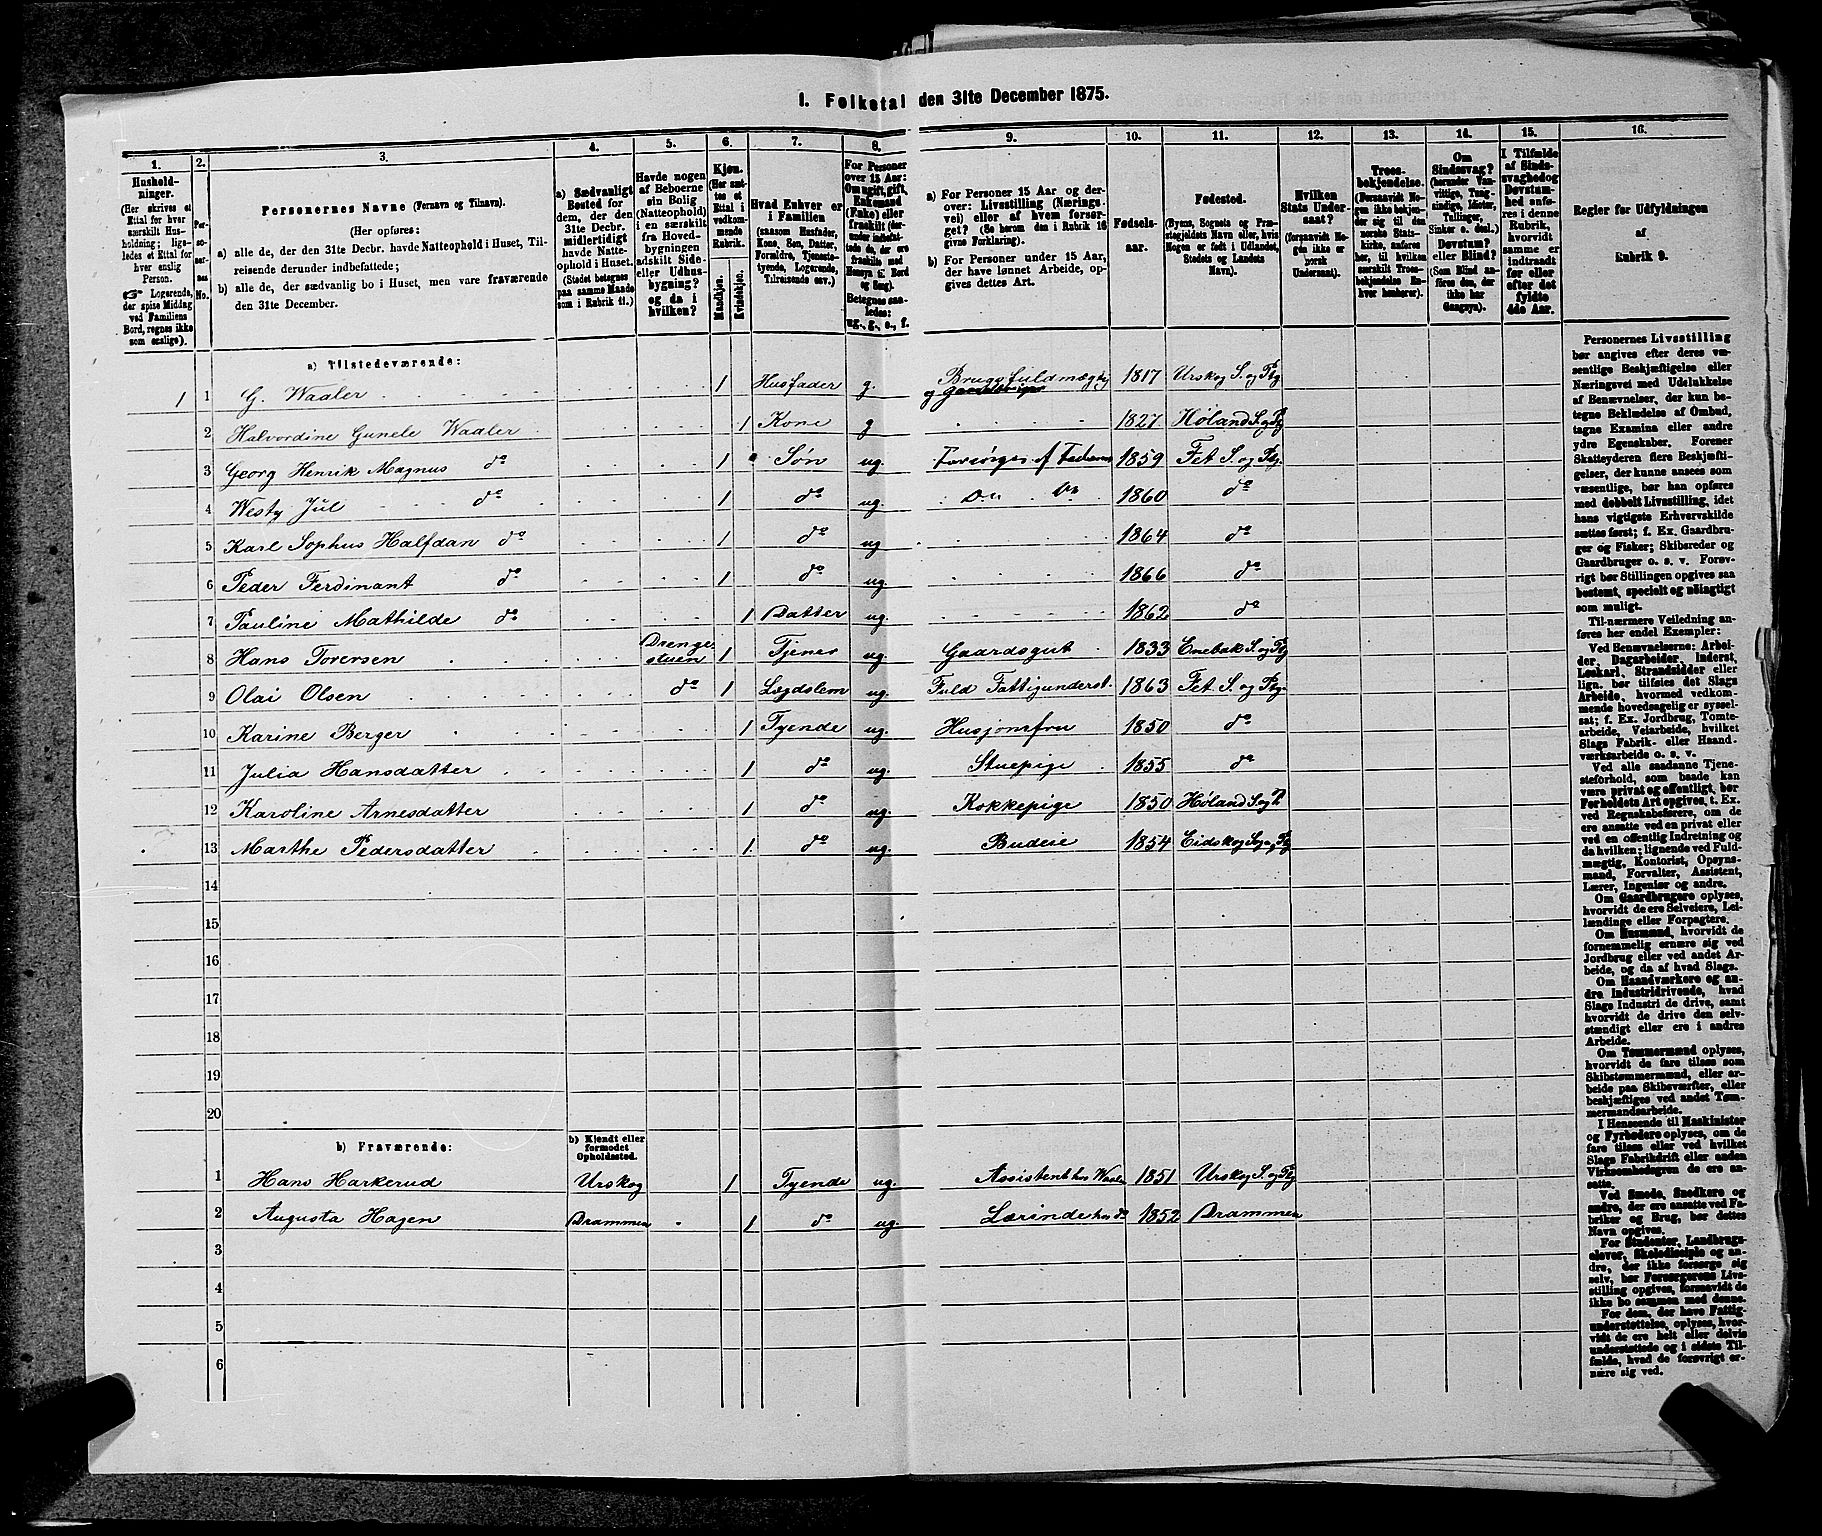 1. Folketal den 31te December 1875.
1.
2.
3.
4.
5.
6.
7.
8.
9.
10.
11.
12.
13.
14.
15.
16.
Hushold-
ninger.
(Her skrives et
Ettal for hver
særskilt Hus-
holdning; lige-
ledes et Ettal for
hver enslig
Person.
Logerende,
der spise Middag
ved Familiens
Bord, regnes ikke
som enslige).
Per-
so-
ner-
nes
No.
Personernes Navne (Fornavn og Tilnavn).
(Her opføres:
a) alle de, der den 31te Decbr. havde Natteophold i Huset, Til-
reisende derunder indbefattede;
b) alle de, der sædvanlig bo i Huset, men vare fraværende
den 31te December.
a) Sædvanligt
Bosted for
dem, der den
31te Decbr.
midlertidigt
havde Natte-
ophold i Huset.
(Stedet betegnes
paa samme Maade
som i Rubrik 11.)
Havde nogen
af Beboerne
sin Bolig
(Natteophold)
i en særskilt
fra Hoved-
bygningen
adskilt Side-
eller Udhus-
bygning?
og da i
hvilken?
Kjøn.
(Her sæt-
tes et
Ettal i
vedkom-
mende
Rubrik.
Mandkjøn.
Kvindekjøn.
Hvad Enhver er
i Familien
(saasom Husfader,
Kone, Søn, Datter,
Forældre, Tjeneste-
tyende, Logerende,
Tilreisende osv.)
For Personer
over 15 Aar:
Om ugift, gift,
Enkemand
(Enke) eller
fraskilt (der-
under indbefat-
tede de, der ere
fraskilte med
Hensyn til Bord
og Seng).
Betegnes saa-
ledes:
ug., g., e., f.
a) For Personer 15 Aar og der-
over: Livsstilling (Nærings-
vei) eller af hvem forsør-
get? (Se herom den i Rubrik 16
givne Forklaring).
b) For Personer under 15 Aar,
der have lønnet Arbeide, op-
gives dettes Art.
Fødsels-
aar.
Fødested.
(Byens, Sognets og Præ-
stegjeldets Navn eller, hvis
Nogen er født i Udlandet,
Stedets og Landets
Navn).
Hvilken
Stats Under-
saat?
(forsaavidt No-
gen ikke er
norsk
Undersaat).
Troes-
bekjendelse.
(Forsaavidt No-
gen ikke bekjen-
der sig til den
norske Stats-
kirke, anføres
her, til hvilken
særskilt Troes-
bekjendelse En-
hver henhører).
Om
Sindssvag?
(herunder Van-
vittige, Tung-
sindige, Idioter,
Tullinger,
Sinker o. desl.)
Døvstum?
eller Blind?
(Som Blind an-
føres den, der
ikke har
Gangsyn).
I Tilfælde
af Sinds-
svaghed og
Døvstum-
hed anfø-
res i denne
Rubrik,
hvorvidt
samme er
indtraadt
før eller
efter det
fyldte
4de Aar.
Regler for Udfyldningen
af
Rubrik 9.
a) Tilstedeværende:
1 1 G. Waaler 1 Husfader g. Brugsfuldmægtig 1817 Urskog S. og Pg
og Gaardbruger
2 Halvordine Gunele Waaler 1 Kone g 1827 Høland S. og Pg
3 Georg Henrik Magnus do 1 Søn ug. Forsørges af Faderen 1859 Fet S. og Pg.
4 Westy Jul do 1 do ug. Do Do 1860 do
5 Karl Sophus Halfdan do 1 do ug 1864 do
6 Peder Ferdinant do 1 do ug. 1866 do
7 Pauline Mathilde do 1 Datter ug. 1862 do
8 Hans Torersen Drenge-
stuen 1 Tjener ug Gaardsgut 1833 Enebak S. og Pg
9 Olai Olsen do 1 Lægdslem ug. Fuld Fattigunderst. 1863 Fet S. og Pg.
10 Karine Berger 1 Tyende ug. Husjomfru 1850 do
11 Julia Hansdatter 1 do ug. Stuepige 1855 do
12 Karoline Arnesdatter 1 do ug. Kokkepige 1850 Høland S og P.
13 Marthe Pedersdatter 1 do ug. Budeie 1854 Eidskog Sogn og Pg
14
15
16
17
18
19
20
b) Fraværende:
b) Kjendt eller
formodet
Opholdssted.
1 Hans Harkerud Urskog 1 Tyende ug. Assistent hos Waaler 1851 Urskog S. og Pg
2 Augusta Hagen Drammen 1 do ug. Lærinde hos do 1852 Drammen
3
4
5
6
Personernes Livsstilling
bør angives efter deres væ-
sentlige Beskjæftigelse eller
Næringsvei med Udelukkelse
af Benævnelser, der kun be-
tegne Beklædelse af Ombud,
tagne Examina eller andre
ydre Egenskaber. Forener
Skatteyderen flere Beskjæfti-
gelser, der kunne ansees som
væsentlige, bør han opføres
med dobbelt Livsstilling, idet
hans vigtigste Erhvervskilde
sættes først; f. Ex. Gaardbru-
ger og Fisker; Skibsreder og
Gaardbruger o. s. v. Forøv-
rigt bør Stillingen opgives saa
bestemt, specielt og nøiagtigt
som muligt.
Til nærmere Veiledning an-
føres her endel Exempler:
Ved Benævnelserne: Arbei-
der, Dagarbeider, Inderst,
Løskarl, Strandsidder eller
lign. bør tilføies det Slags
Arbeide, hvormed vedkom-
mende hovedsagelig er syssel-
sat; f. Ex. Jordbrug, Tomte-
arbeide, Veiarbeide, hvilket
Slags Fabrik- eller Haand-
værksarbeide o. s. v.
Ved alle saadanne Tjene-
steforhold, som baade kan
være privat og offentligt, bør
Forholdets Art opgives, t. Ex.
ved Regnskabsførere, om de
ere ansatte ved en privat eller
ved en offentlig Indretning og
da hvilken; lignende ved Fuld-
mægtig, Kontorist, Opsyns-
mand, Forvalter, Assistent,
Lærer, Ingeniør og andre.
Om Gaardbrugere oplyses,
hvorvidt de ere Selveiere, Lei-
lændinge eller Forpagtere.
Om Husmænd, hvorvidt de
fornemmelig ernære sig ved
Jordbrug eller ved andet Ar-
beide, og da af hvad Slags.
Om Haandværkere og an-
dre Industridrivende, hvad
Slags Industri de drive, samt
hvorvidt de drive den selv-
stændigt eller ere i andres
Arbeide.
Om Tømmermænd oplyses,
hvorvidt de fare tilsøs som
Skibstømmermænd, eller ar-
beide paa Skibsværfter, eller
beskjæftiges ved andet Tøm-
mermandsarbeide.
I Henseende til Maskinister
og Fyrbødere oplyses, om de
fare tilsøs eller ved hvilket
Slags Fabrikdrift eller anden
Virksomhedsgren de ere an-
satte.
Ved Smede, Snedkere og
andre, der ere ansatte ved Fa-
briker og Brug, bør dettes
Navn opgives.
For Studenter, Landbrugs-
elever, Skoledisciple og an-
dre, der ikke forsørge sig
selv, bør Forsørgerens Livs-
stilling opgives, forsaavidt de
ikke bo sammen med denne.
For dem, der have Fattig-
understøttelse, oplyses, hvor-
vidt de ere helt eller delvis
understøttede og i sidste Til-
fælde, hvad de forøvrigt er-
nære sig ved.